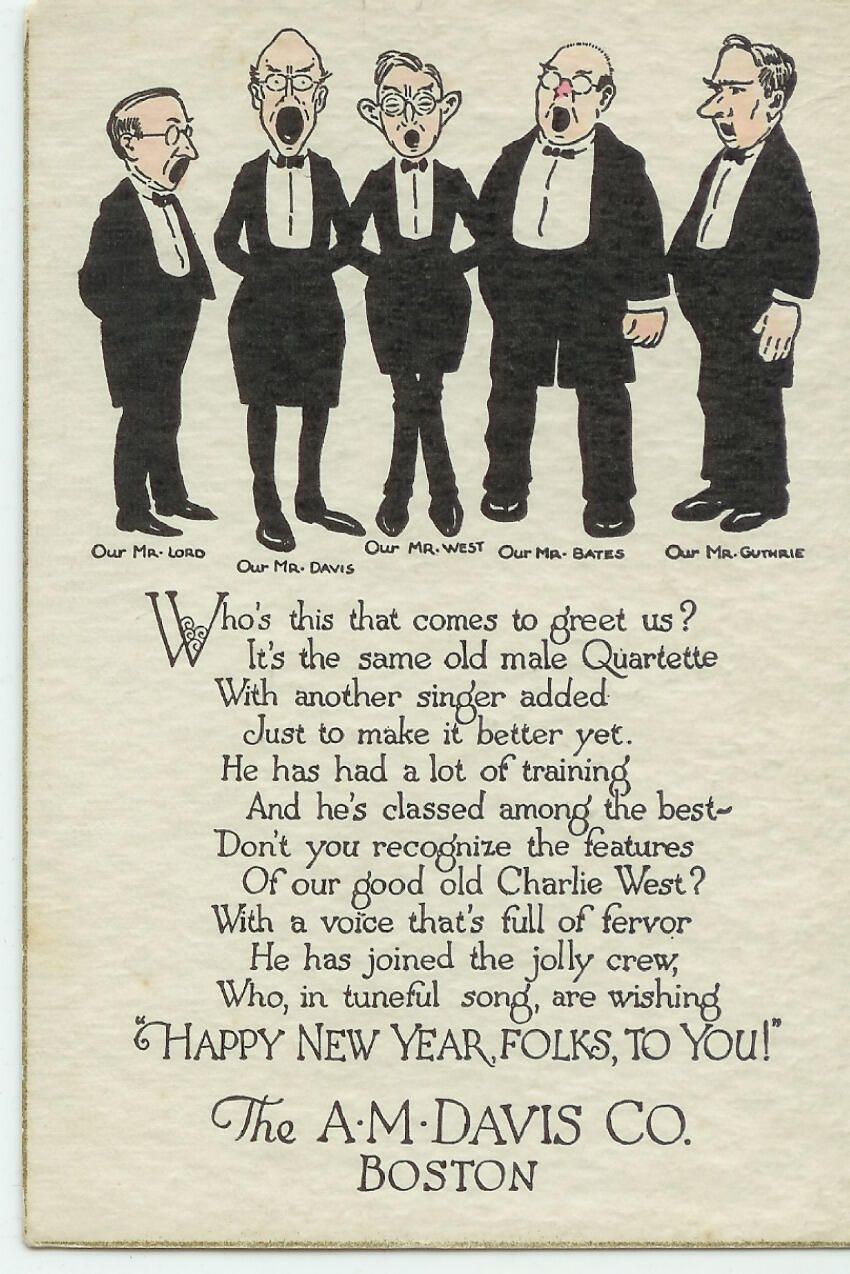 Our MR. LORD
Our MR. DAVIS
Our MR. WEST
Our MR. BATES
Our MR. GUTHRIE
Who's this that comes to greet us?
It's the same old male Quartette
With another singer added
Just to make it better yet.
He has had a lot of training
And he's classed among the best~
Don't you recognize the features
Of our good old Charlie West?
With a voice that's full of fervor
He has joined the jolly crew,
Who, in tuneful song, are wishing
"HAPPY NEW YEAR, FOLKS, TO YOU!"
The A·M·DAVIS CO.
BOSTON